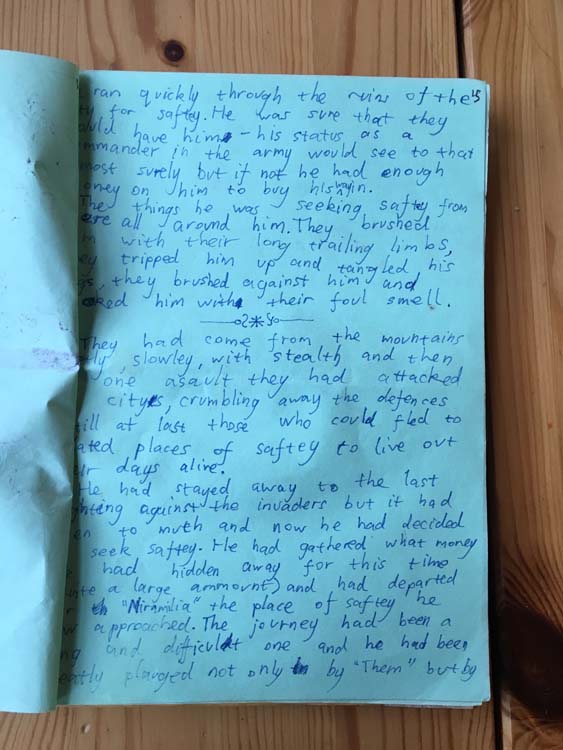 ran quickly through the ruins of the 15
ty for saftey. He was sure that they
uld have him - his status as a
mmander in the army would see to that
most surely but if not he had enough
oney on him to buy his way in.
The things he was seeking saftey from
are all around him. They brushed
m with their long trailing limbs,
ey tripped him up and tangled his
gs, they brushed against him and
oked him with their foul smell.
They had come from the mountains
tly, slowley, with stealth and then
one asault they had attacked
city, crumbling away the defences
till at last those who could fled to
ated places of saftey to live out
eir days alive.
He had stayed away to the last
ghting against the invaders but it had
en to much and now he had decided
seek saftey. He had gathered what money
e had hidden away for this time
uite a large ammount) and had departed
r "Niramilia" the place of saftey he
w approached. The journey had been a
ng and difficult one and he had been
eatly plauged not only by "Them" but by